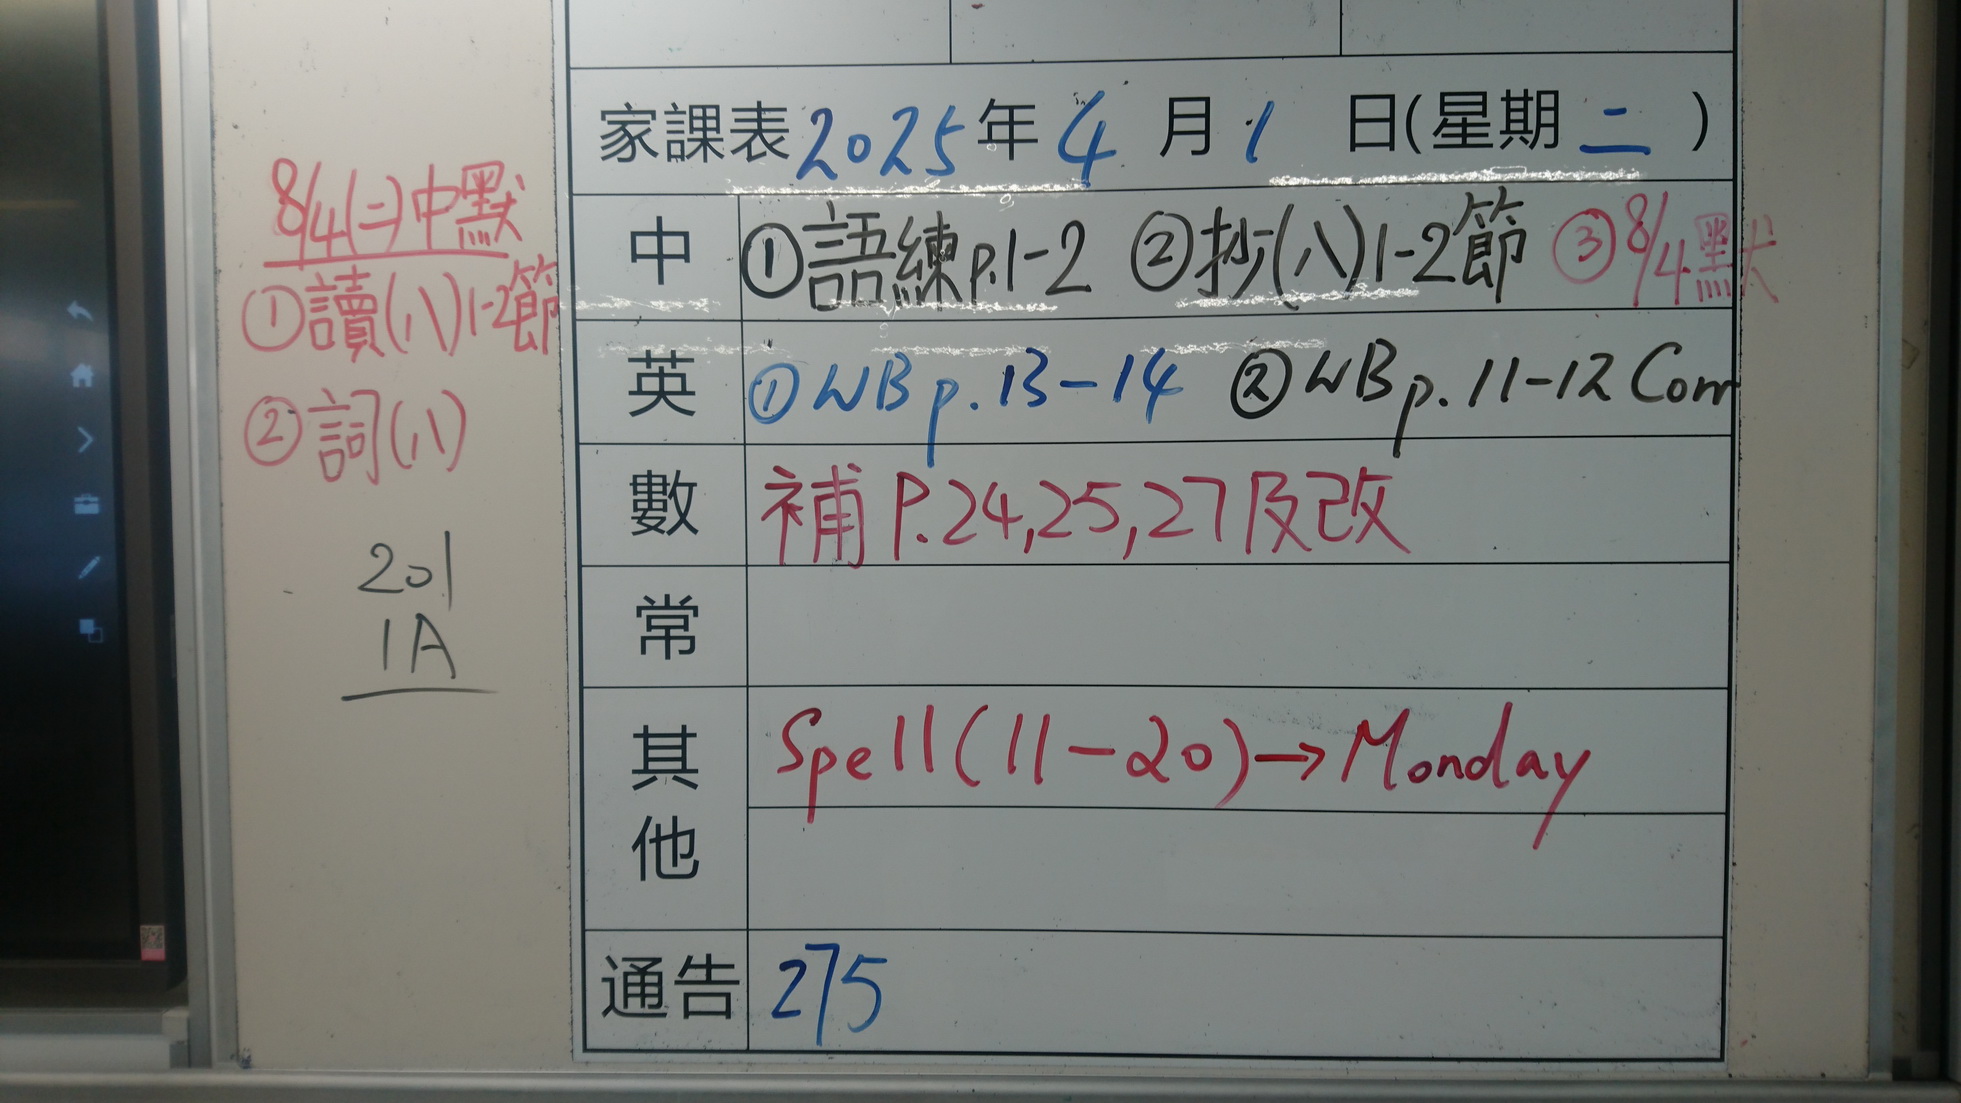 家課表2025年4月1日(星期二)
中 ①語練p.1-2 ②抄(八)1-2節 ③8/4默
英 ①WB p.13-14 ②WB p.11-12 Corr
數 補P.24,25,27及改
常
其他 Spell(11-20)→Monday
通告 275
8/4(二)中默
①讀(八)1-2節
②詞(八)
201
1A